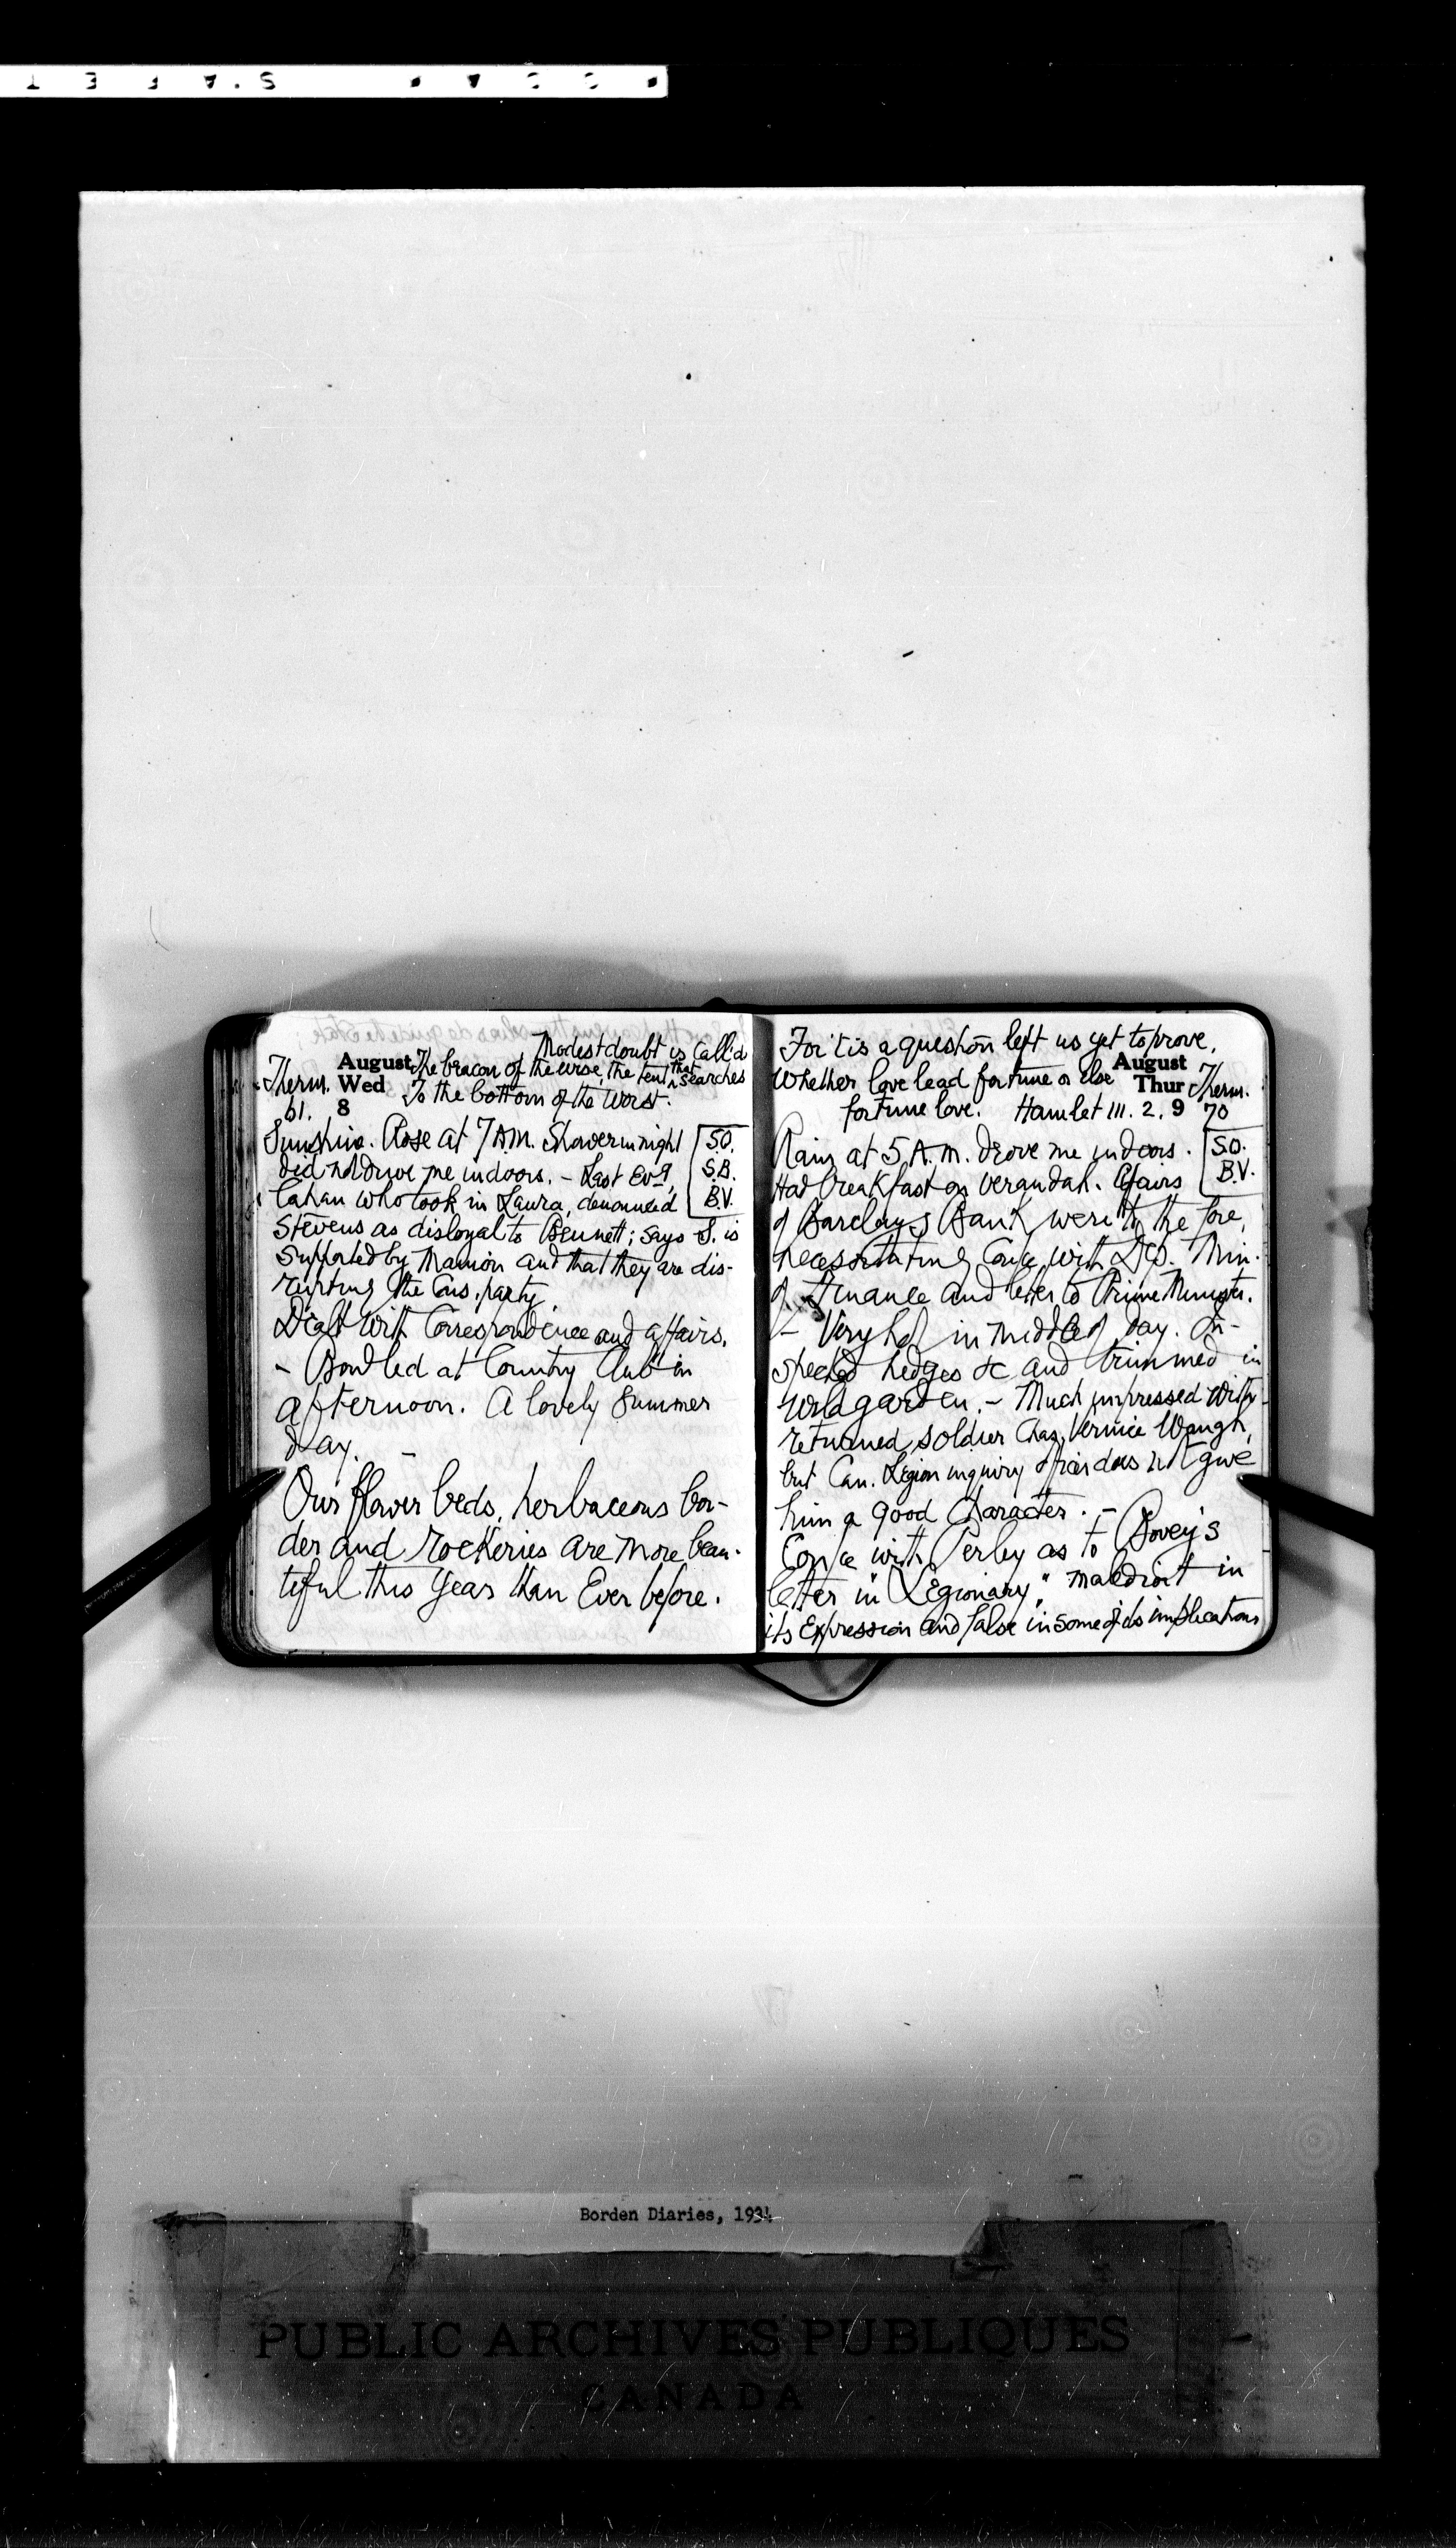 Modest doubt is call'd
August The beacon of the wise, the tent that searches
Therm. Wed To the bottom of the worst.
61. 8
Sunshine. Rose at 7 A.M. Shower in night S.O.
did not drive me indoors. - Last Evg, S.B.
Cahan who took in Laura, denounced B.V.
Stevens as disloyal to Bennett; says S. is
supported by Manion and that they are dis-
rupting the Cons. party.
Dealt with Correspondence and affairs.
- Bowled at Country Club in
afternoon. A lovely summer
day. -
Our flower beds, herbaceous bor-
der and rockeries are more beau-
tiful this year than Ever before.
For 'tis a question left us yet to prove,
Whether love lead fortune or else August
Thur Therm.
fortune love. Hamlet III. 2. 9 70
Rain at 5 A.M. drove me indoors. S.O.
Had breakfast on verandah. Affairs B.V.
of Barclays Bank were to the fore,
necessitating Confce with Min.
of Finance and letter to Prime Minister.
- Very hot in middle of day. In-
spected hedges &c and trimmed in
wild garden. - Much impressed with
returned soldier Chas. Vernice Waugh,
but Can. Legion inquiry does not give
him a good character. -
Confce with Perley as to Bovey's
letter in "Legionary" maladroit in
its Expression and false in some of its implications
Borden Diaries, 1934
PUBLIC ARCHIVES PUBLIQUES
CANADA